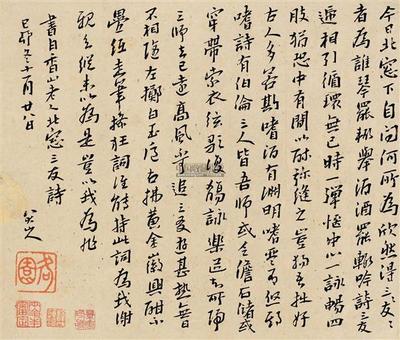 今日北窓下自问何所為欣然得三友〻
者為誰琴罷輙舉酒酒罷輙吟詩三友
遞相引循環無已時一彈愜中心一詠暢四
肢猶恐中有間以酔弥縫之豈獨吾拙好
古人多若斯嗜酒有渊明嗜琴有啟期
嗜詩有伯倫三人皆吾師或乏儋石儲或
穿帶索衣弦歌復觴詠樂道知所歸
三師去已遠高風不可追三友遊甚熟無日
不相随左擲白玉卮右拂黄金徽興酣不
疊紙走筆操狂詞誰能持此詞為我謝
親知縱未以為是豈以我為非
書白香山老人北窓三友詩
己卯冬十一月廿八日
八大山人